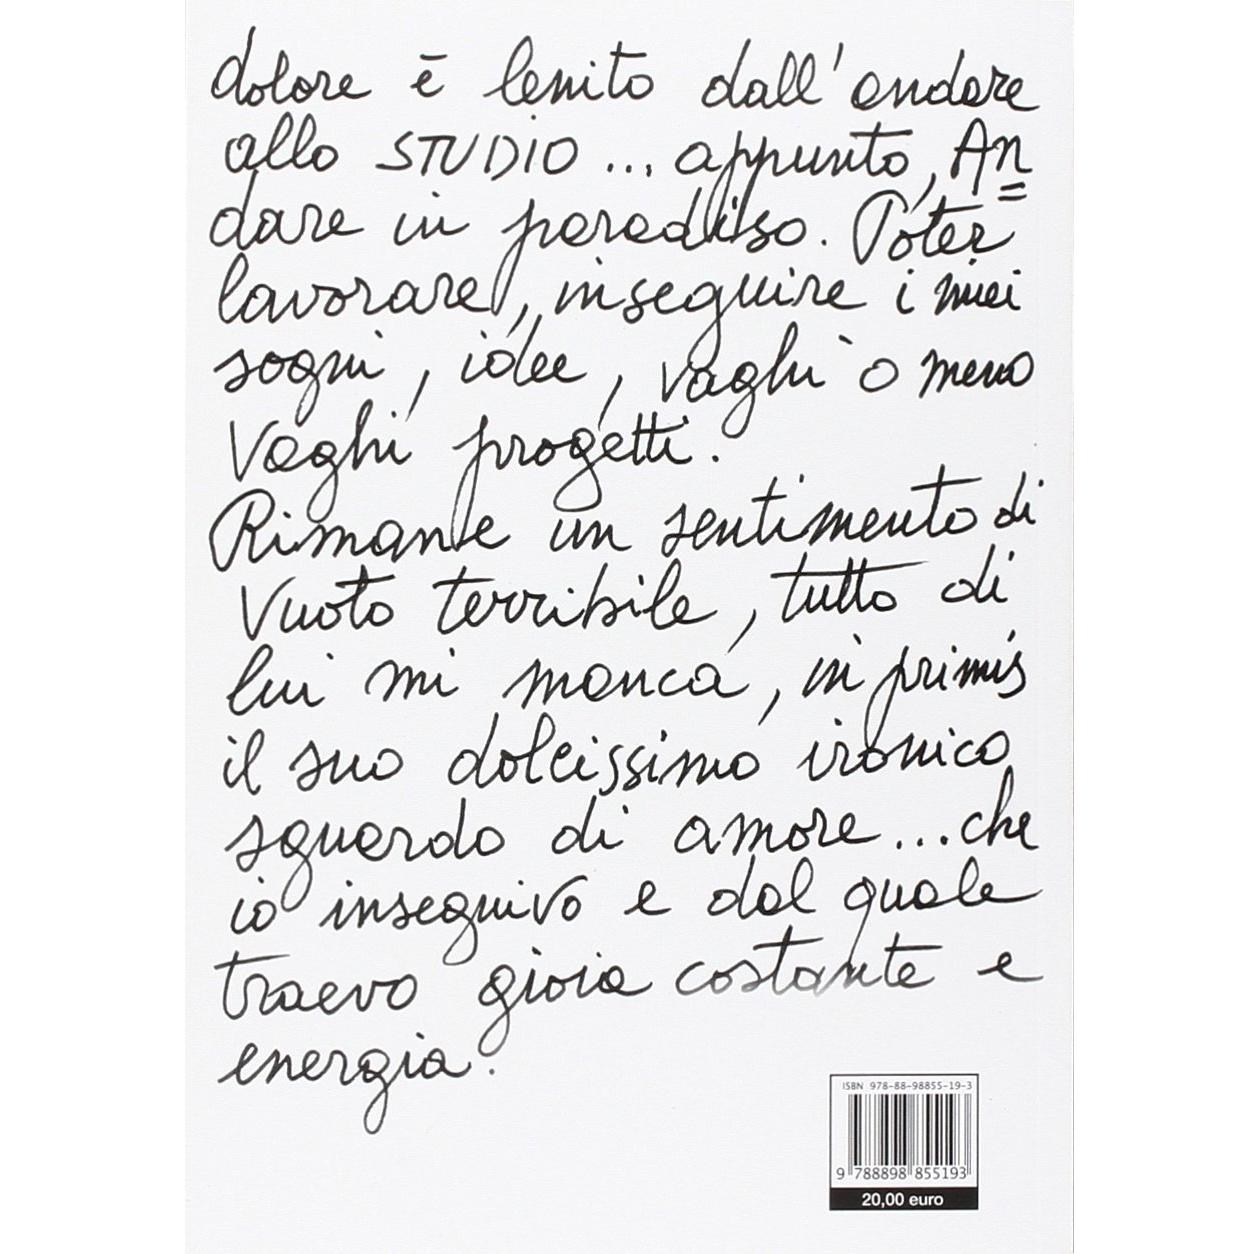 dolore è lenito dall'andare
allo STUDIO... appunto, An
dare in paradiso. Poter
lavorare, inseguire i miei
sogni, idee, vaghi o meno
vaghi progetti.
Rimane un sentimento di
vuoto terribile, tutto di
lui mi manca, in primis
il suo dolcissimo ironico
sguardo di amore... che
io inseguivo e dal quale
traevo gioia costante e
energia.
ISBN 978-88-98855-19-3
9 788898 855193
20,00 euro